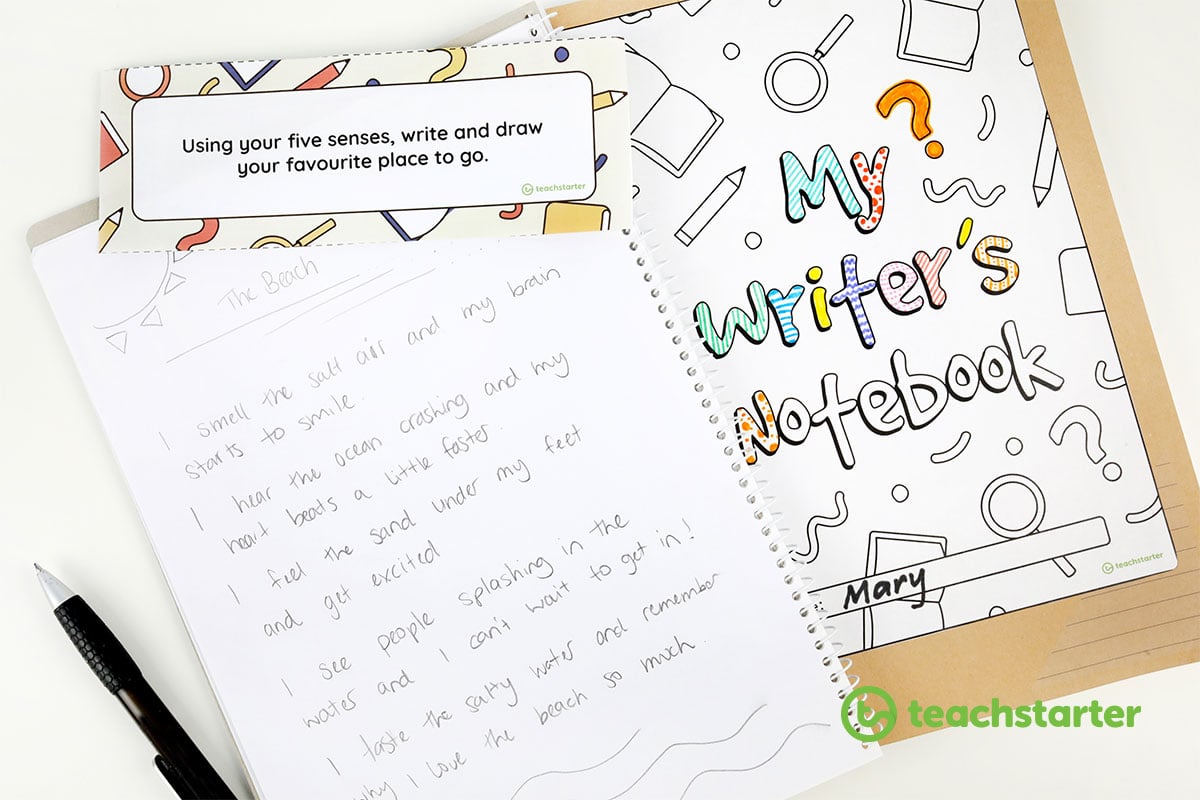 Using your five senses, write and draw
your favourite place to go.
teachstarter
The Beach
I smell the salt air and my brain
starts to smile.
I hear the ocean crashing and my
heart beats a little faster.
I feel the sand under my feet
and get excited
I see people splashing in the
water and I can't wait to get in!
I taste the salty water and remember
why I love the beach so much.
?
My
Writer's
Notebook
teachstarter
Mary
teachstarter